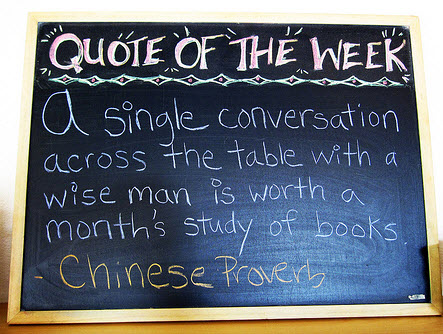 QUOTE OF THE WEEK
A single conversation
across the table with a
wise man is worth a
month's study of books.
- Chinese Proverb